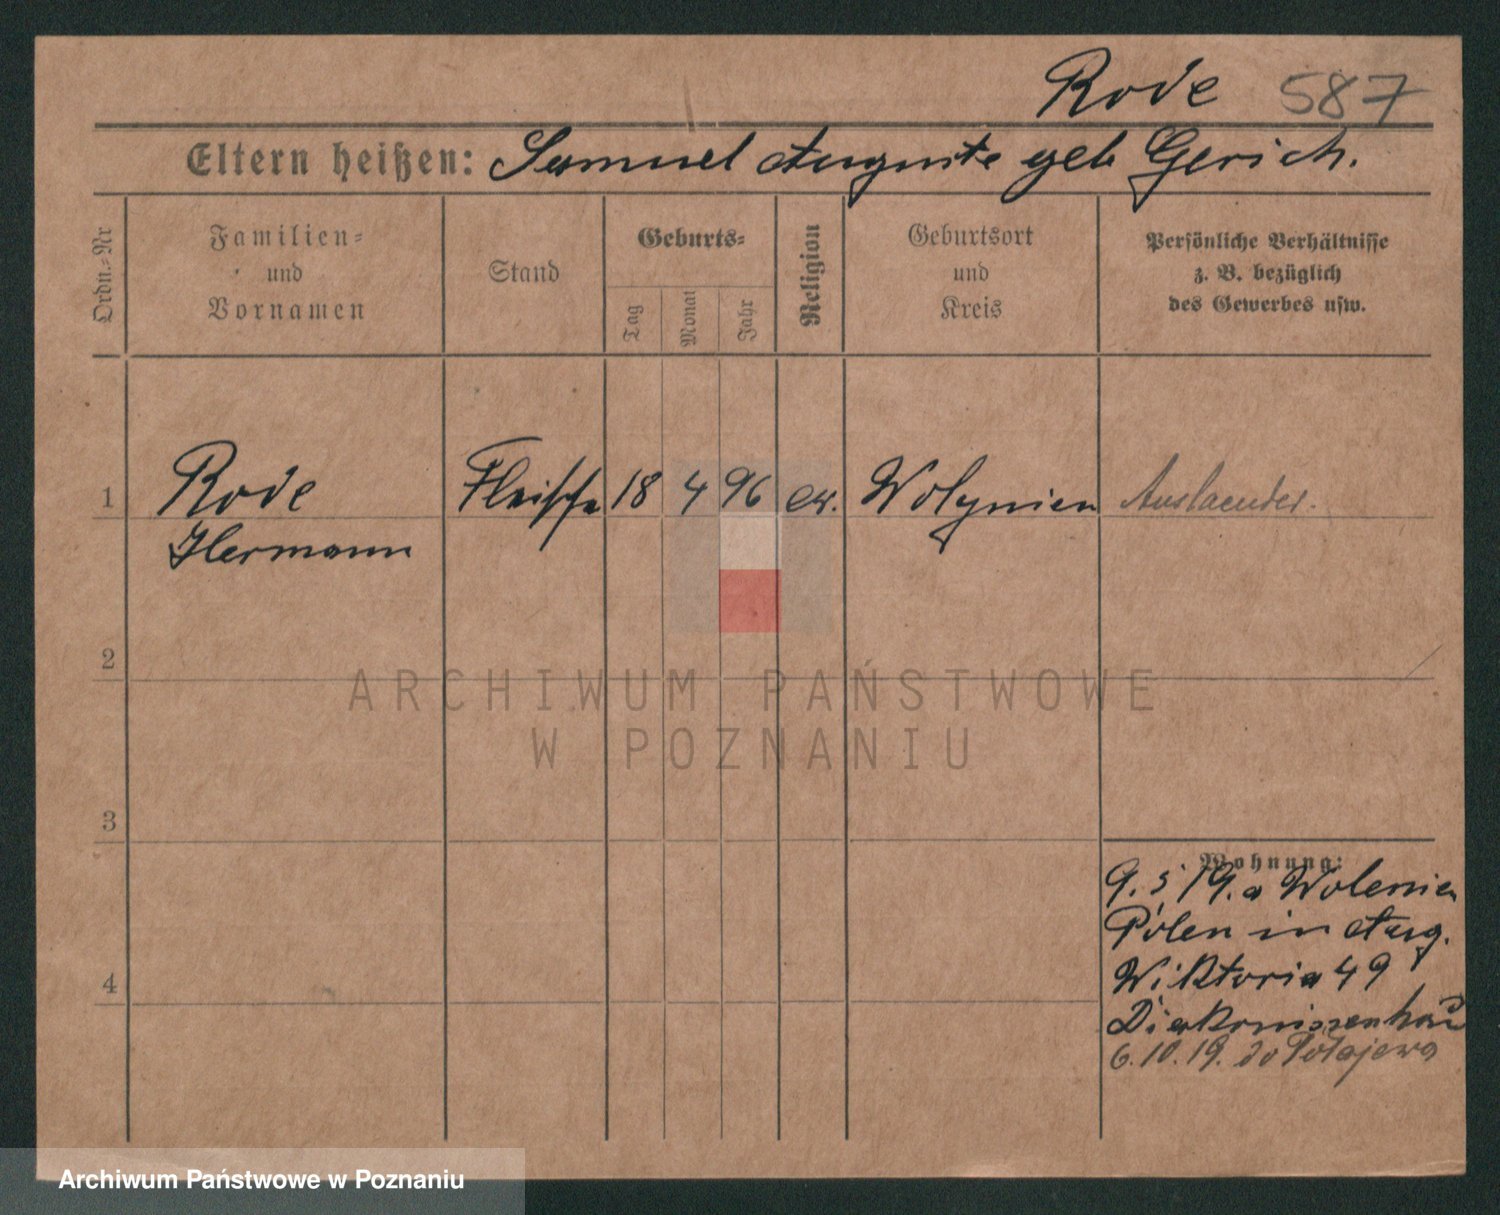 Rode 587
Eltern heißen: Samuel Auguste geb Gerich.
Ordn.-Nr
Familien-
und
Vornamen
Stand
Geburts-
Tag
Monat
Jahr
Religion
Geburtsort
und
Kreis
Persönliche Verhältnisse
z. B. bezüglich
des Gewerbes usw.
1 Rode Fleische 18 4 96 ev. Wolynien Auslaender.
Hermann
2
ARCHIWUM PAŃSTWOWE
W POZNANIU
3
Wohnung:
9. 5 19. a Wolenien
Polen in Aug.
4
Wiktoria 49
Diakonissenhau
6.10.19. do Połajewa
Archiwum Państwowe w Poznaniu